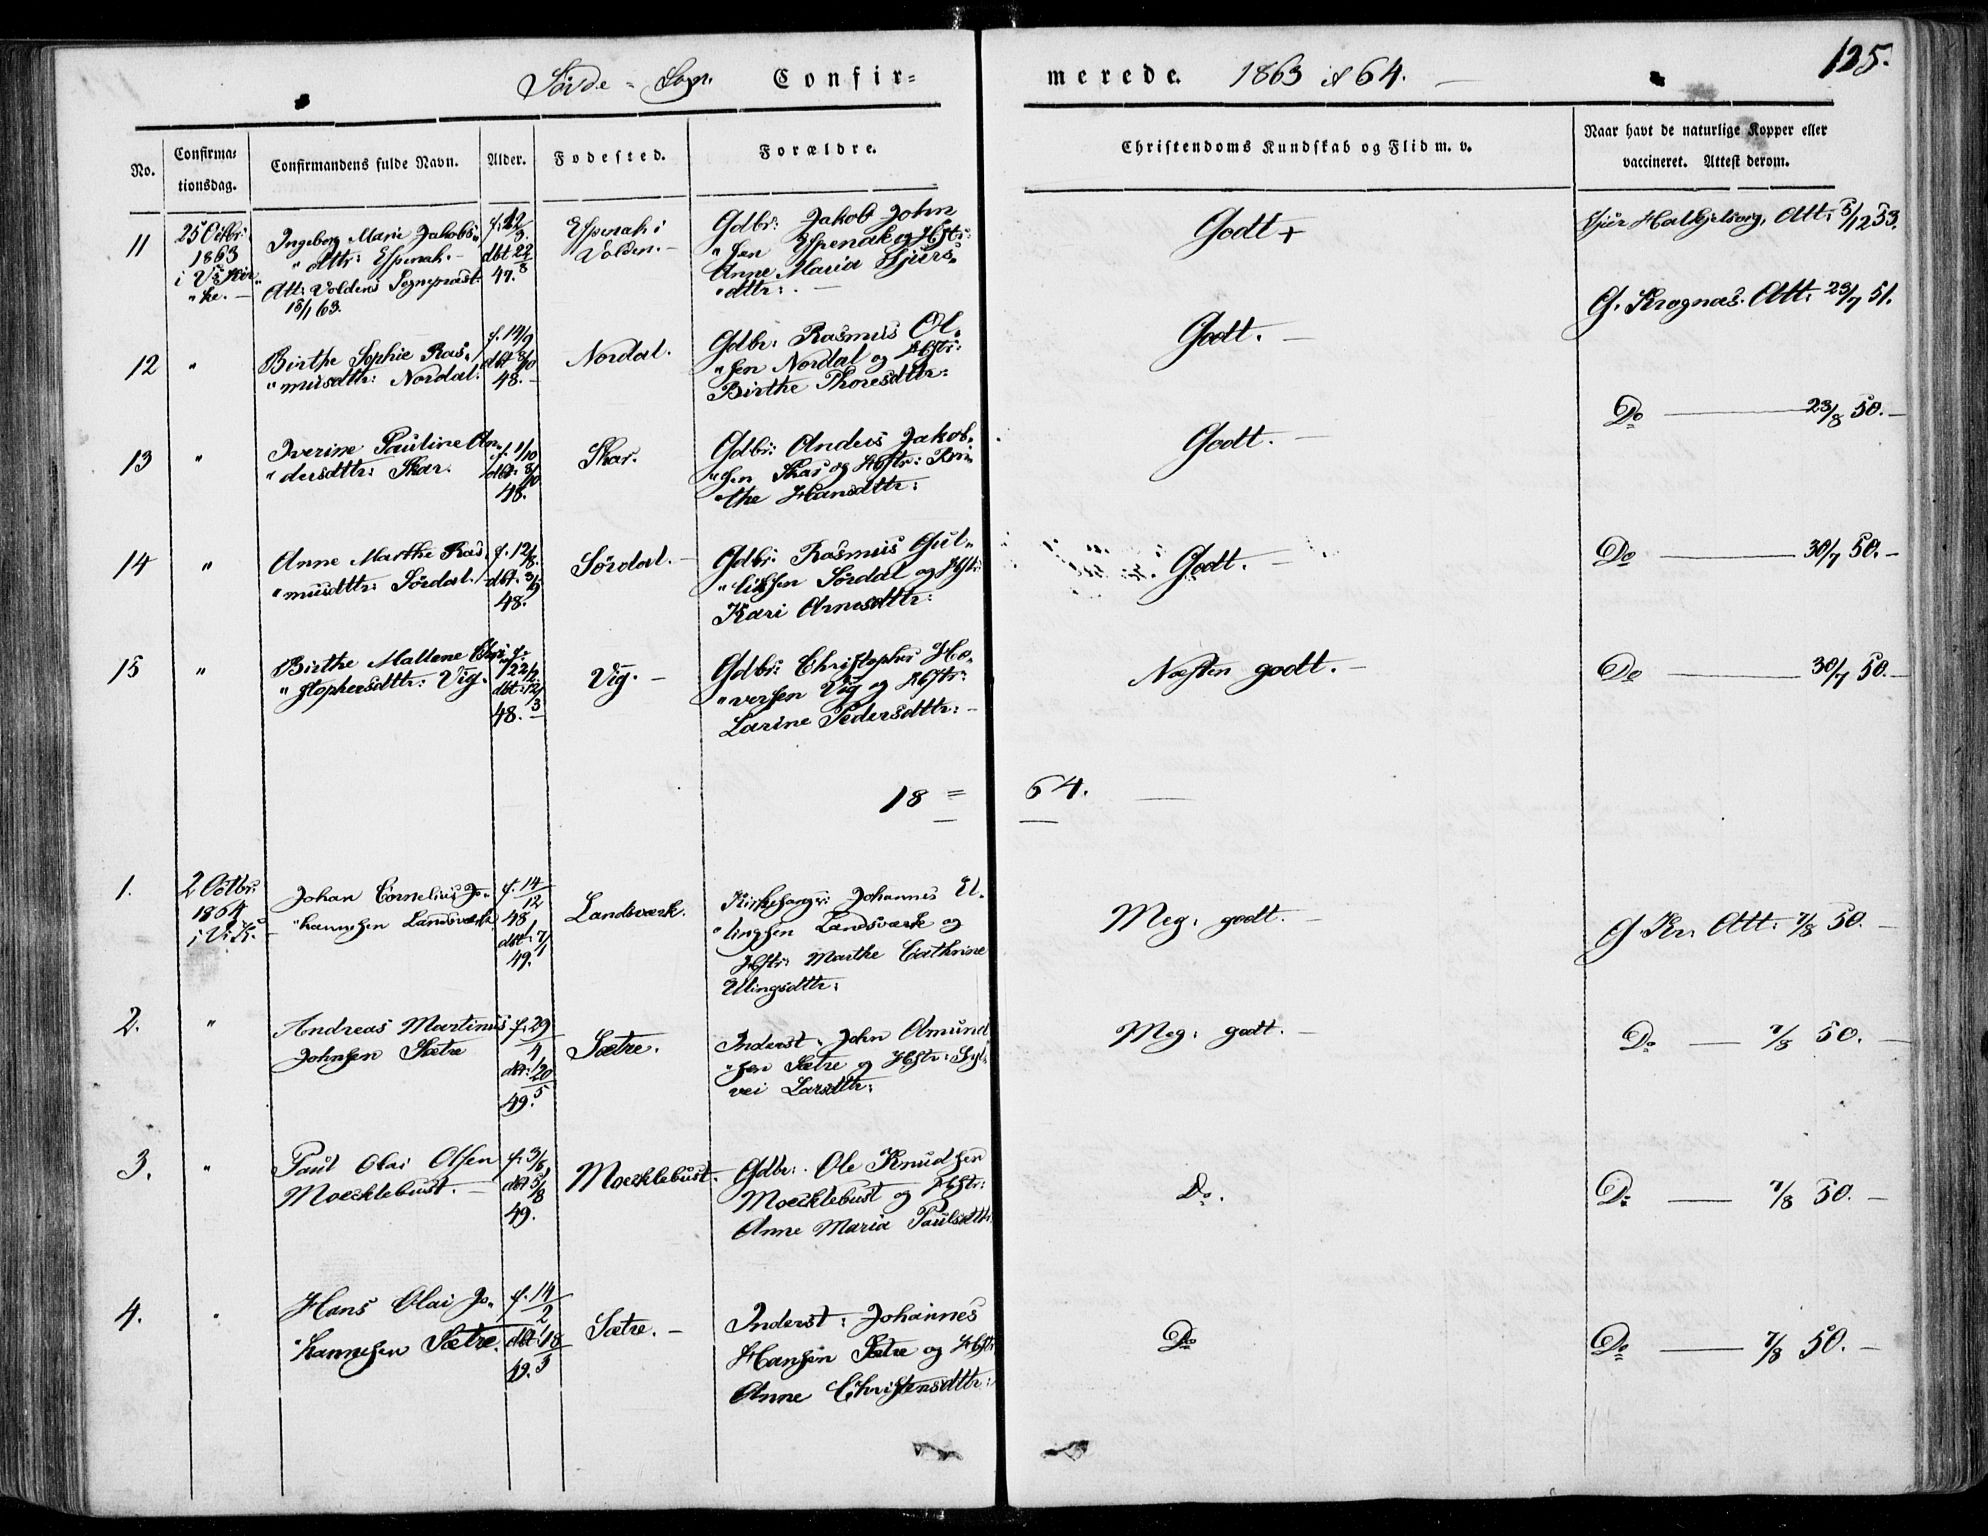 125.
Sövde = Sogn. Confir=
merede. 1863 & 64.
No.
Confirma-
tionsdag.
Confirmandens fulde Navn.
Alder.
Fodested.
Forældre.
Christendoms Kundskab og Flid m. v.
Naar havt de naturlige Kopper eller
vaccineret. Attest derom.
11
25 Octbr:
1863
i Vs Kir„
„ke. —
Ingeborg Marie Jakobs„
„dttr: Espenak. —
Att: Voldens Sognepræst:
18/1 63.
f. 22/3.
dbt 22/8
47.
Espenak i
Volden. —
Gdbr: Jakob John
„sen Espenak og Hstr:
Anne Maria Sjurs„
„dttr: —
Godt +
Att: 5/12 53.
12
„
Birthe Sophie Ras„
„musdttr: Nordal.
f. 14/9
dbt 8/10
48. —
Nordal.
Gdbr: Rasmus Ol„
„sen Nordal og Hstr:
Birthe Thoresdttr:
Godt. —
G. Kragnæs. Att: 23/7 51.
13
„
Iverine Pauline An„
„dersdttr: Skar.
f. 1/10
dbt: 8/10
48.
Skar.
Gdbr: Anders Jakob„
„sen Skar og Hstr: Bri„
„the Hansdttr:
Godt. —
Do — 23/8 50. —
14
„
Anne Marthe Ras„
„musdttr: Sördal.
f. 12/8.
dbt. 3/9
48.
Sördal. —
Gdbr: Rasmus Gul„
„liksen Sördal og Hstr:
Kari Arnesdttr:
Godt. —
Do — 30/7 50. —
15
„
Birthe Mallene Chri„
„stophersdttr: Vig.
f.
22/2
dbt: 12/3
48. —
Vig. —
Gdbr: Christopher Ha„
„versen Vig og Hstr:
Larine Pedersdttr: —
Næsten godt. —
Do — 30/7 50. —
18 = 64. —
1.
2 Octbr:
1864
i Vs K. —
Johan Cornelius Jo„
„hannesen Landsværk.
f. 14/12
48
dbt: 7/1
49.
Landsværk.
Kirkesanger: Johannes El„
„lingsen Landsværk og
Hstr: Marthe Cathrine
Ellingsdttr:
Meg: godt. —
G. Kr. Att: 7/8 50. —
2.
„
Andreas Martinus
Johnsen Sætre
f. 29/4
dbt: 20/5
49.
Sætre.
Inderst: John Amund
„sen Sætre og Hstr: Syl„
vei Larsdttr:
Meg: godt. —
Do — 7/8 50. —
3.
„
Paul Olai Olsen
Moecklebust. —
f. 3/6
dbt 5/8
49.
Moecklebust.
Gdbr: Ole Knudsen
Moecklebust og Hstr:
Anne Maria Paulsdttr:
Do.
Do — 7/8 50. —
4.
„
Hans Olai Jo„
„hannesen Sætre.
f. 14/2
dbt: 18/3
49.
Sætre. —
Inderst: Johannes
Hansen Sætre og Hstr
Anne Christensdttr:
Do
Do — 7/8 50. —